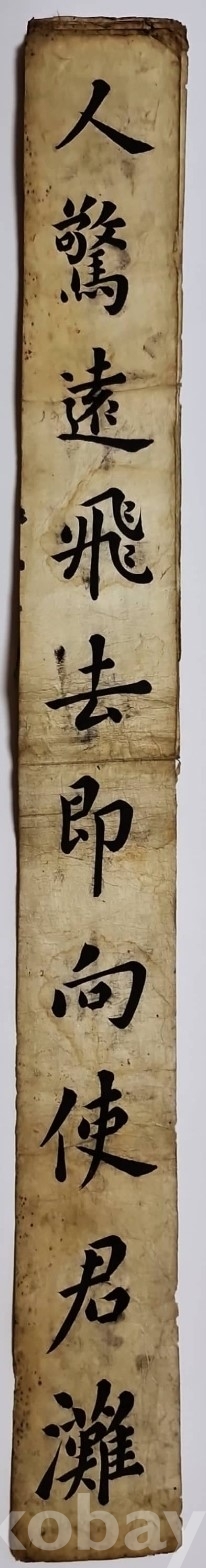 人驚遠飛去即向使君灘
kobay